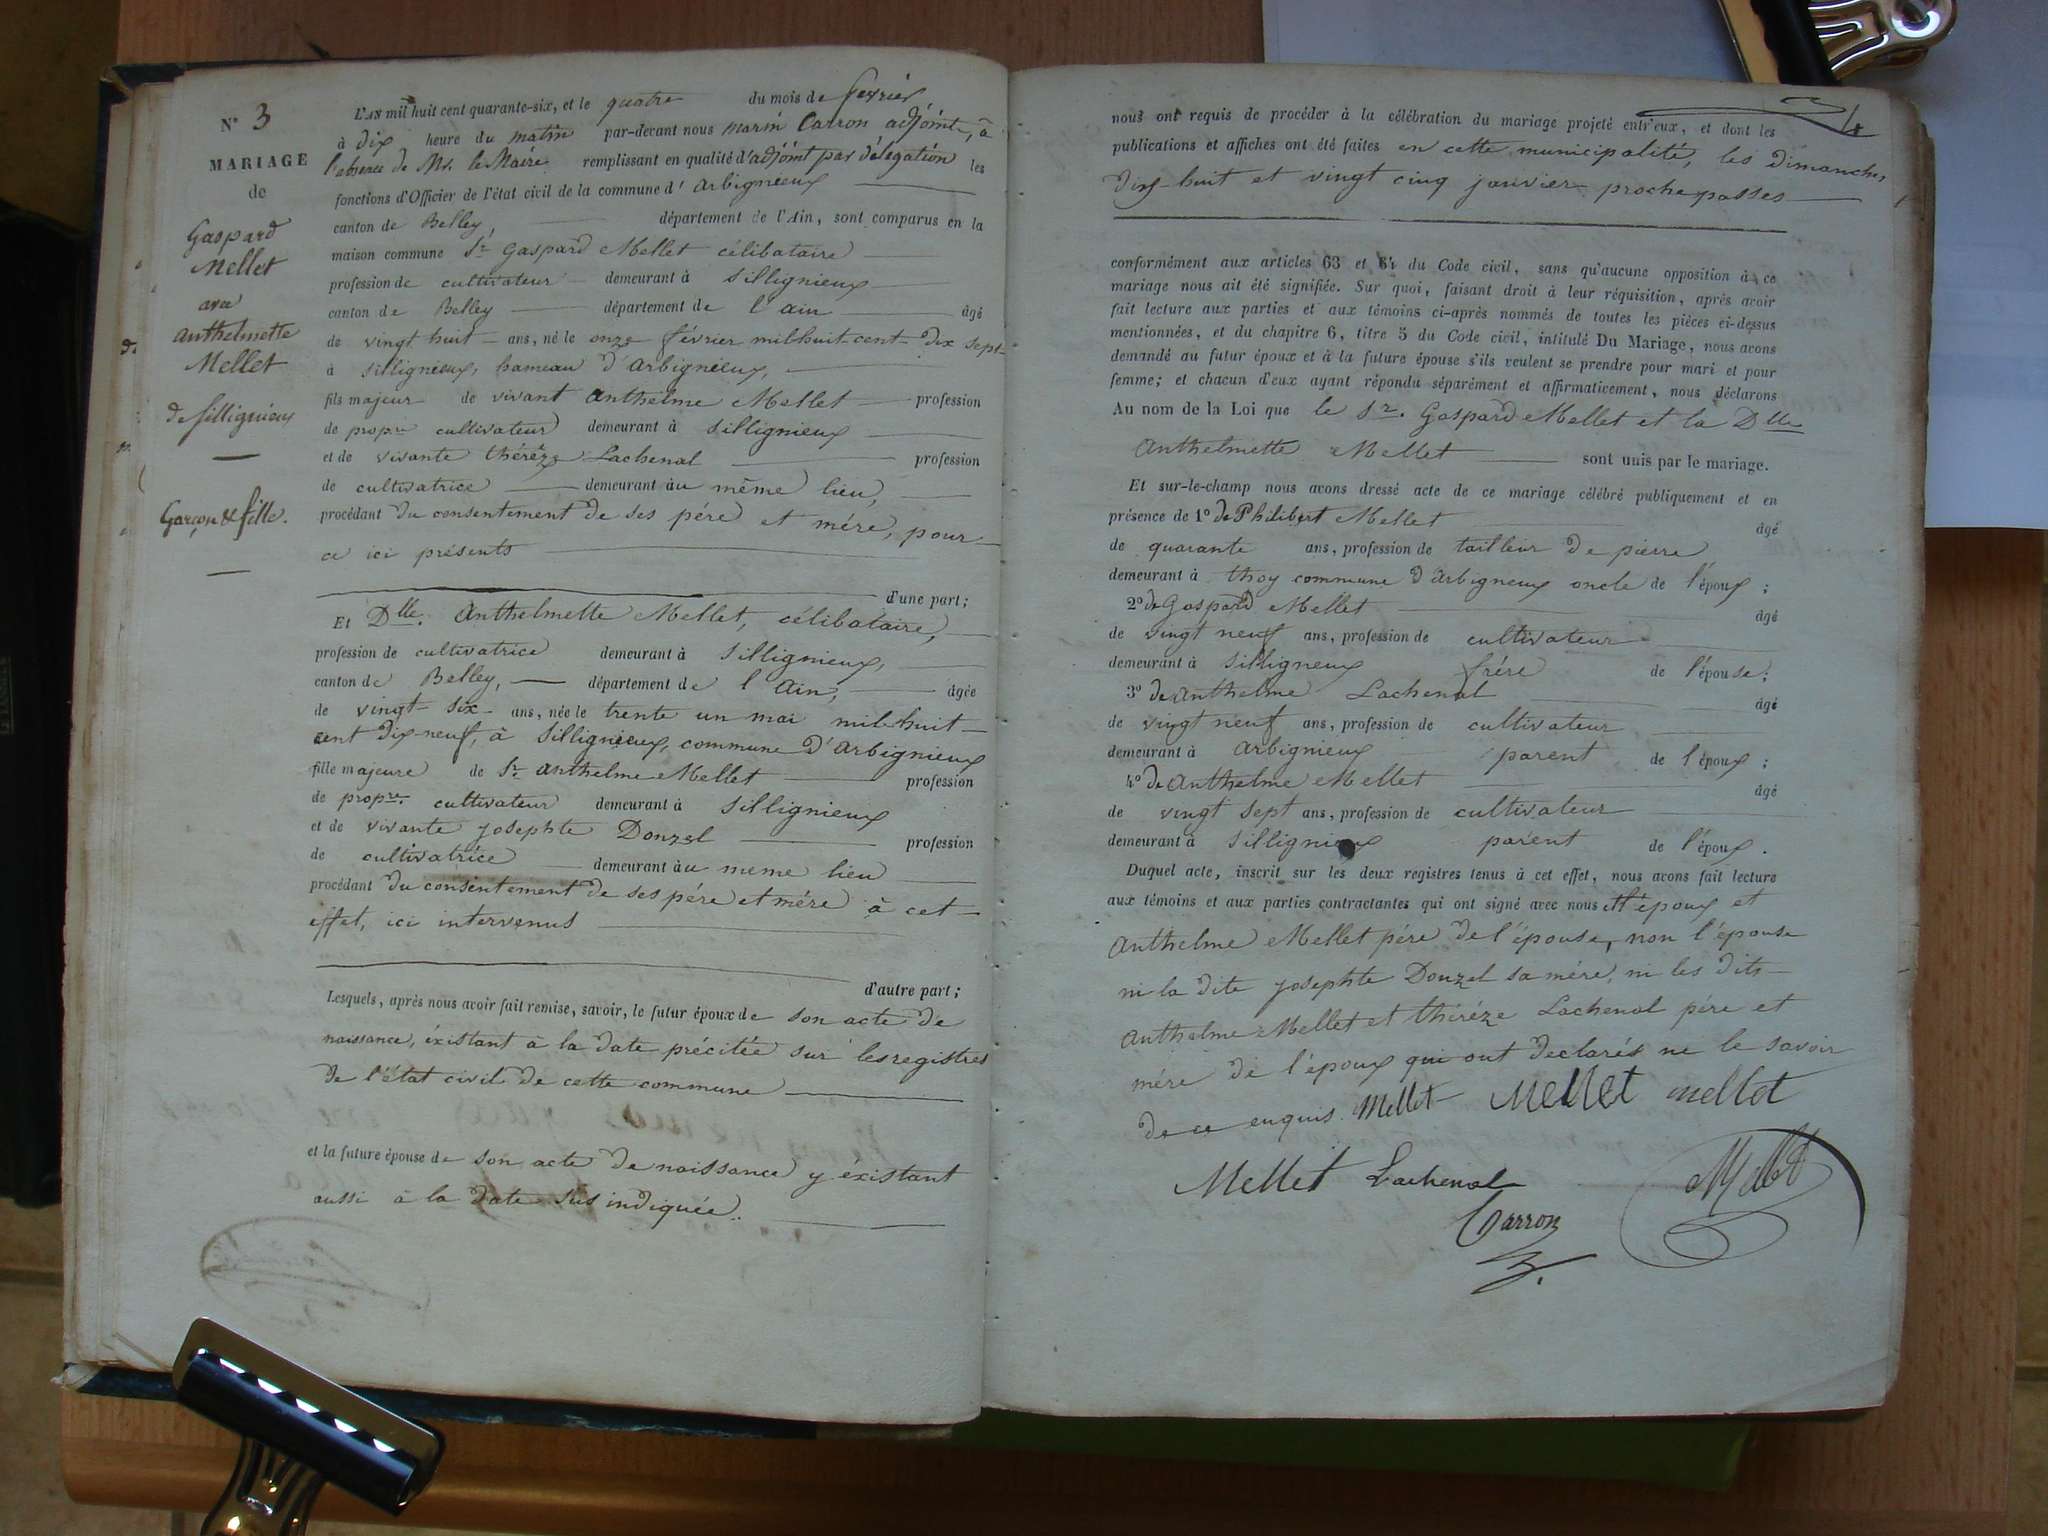 N° 3
MARIAGE
de
Gaspard
Mellet
avec
Anthelmette
Mellet
de Sillignieux
Garçon & fille.
L'AN mil huit cent quarante-six, et le quatre du mois de février
à dix heure du matin par-devant nous marin Carron adjoint, à
l'absence de Mr. le Maire remplissant en qualité d'adjoint par délégation les
fonctions d'Officier de l'état civil de la commune d'Arbignieux
canton de Belley, département de l'Ain, sont comparus en la
maison commune Sr. Gaspard Mellet célibataire
profession de cultivateur demeurant à Sillignieux
canton de Belley département de l'ain âgé
de vingt huit ans, né le onze février mil huit cent dix sept
à Sillignieux, hameau d'Arbignieux,
fils majeur de vivant Anthelme Mellet profession
de propre cultivateur demeurant à Sillignieux
et de vivante thérèze Lachenal profession
de cultivatrice demeurant àu même lieu,
procédant du consentement de ses père et mère, pour
ce ici présents
d'une part;
Et Dlle. Anthelmette Mellet, célibataire,
profession de cultivatrice demeurant à Sillignieux,
canton de Belley, département de l'Ain, âgée
de vingt-six ans, née le trente un mai mil huit
cent dix neuf, à Sillignieux, commune d'Arbignieux
fille majeure de Sr. Anthelme Mellet profession
de propre. cultivateur demeurant à Sillignieux
et de vivante Josephte Donzel profession
de cultivatrice demeurant àu meme lieu
procédant du consentement de ses père et mère à cet
effet, ici intervenus
d'autre part;
Lesquels, après nous avoir fait remise, savoir, le futur époux de son acte de
naissance, éxistant à la date précitée sur les registres
de l'état civil de cette commune
et la future épouse de son acte de naissance y éxistant
aussi à la date sus indiquée.
4
nous ont requis de procéder à la célébration du mariage projeté entr'eux, et dont les
publications et affiches ont été faites en cette municipalité, les dimanches
dix-huit et vingt cinq janvier proche passés
conformément aux articles 63 et 64 du Code civil, sans qu'aucune opposition à ce
mariage nous ait été signifiée. Sur quoi, faisant droit à leur réquisition, après avoir
fait lecture aux parties et aux témoins ci-après nommés de toutes les pièces ci-dessus
mentionnées, et du chapitre 6, titre 5 du Code civil, intitulé Du Mariage, nous avons
demandé au futur époux et à la future épouse s'ils veulent se prendre pour mari et pour
femme; et chacun d'eux ayant répondu séparément et affirmativement, nous déclarons
Au nom de la Loi que le Sr. Gaspard Mellet et la Dlle
Anthelmette Mellet sont unis par le mariage.
Et sur-le-champ nous avons dressé acte de ce mariage célébré publiquement et en
présence de 1° de Philibert Mellet âgé
de quarante ans, profession de tailleur de pierre
demeurant à thoy commune d'Arbignieux oncle de l'époux;
2° de Gaspard Mellet âgé
de vingt neuf ans, profession de cultivateur
demeurant à Sillignieux frère de l'épouse;
3° de Anthelme Lachenal âgé
de vingt neuf ans, profession de cultivateur
demeurant à Arbignieux parent de l'époux;
4° de Anthelme Mellet âgé
de vingt sept ans, profession de cultivateur
demeurant à Sillignieux parent de l'époux.
Duquel acte, inscrit sur les deux registres tenus à cet effet, nous avons fait lecture
aux témoins et aux parties contractantes qui ont signé avec nous et l'époux et
Anthelme Mellet père de l'épouse, non l'épouse
ni la dite Josephte Donzel sa mère, ni les dits
Anthelme Mellet et thérèze Lachenal père et
mère de l'époux qui ont declarés ne le savoir
de ce enquis. Mellet Mellet mellet
Mellet Lachenal Mellet
Carron